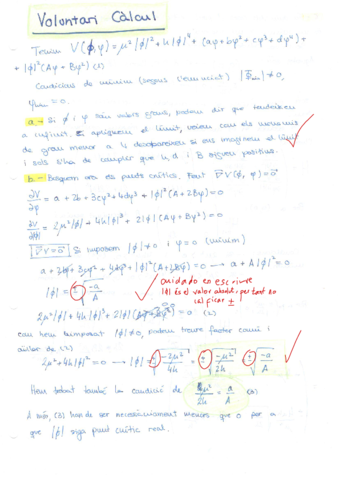 Volontari Càlcul
Tenim V(ϕ,φ)=μ²|ϕ|²+h|ϕ|⁴+(aφ+bφ²+cφ³+dφ⁴)+
+|ϕ|²(Aφ+Bφ²) (1)
Condicions de mínim (segons l'enunciat) |ϕmin|≠0,
φmin=0.
a.- Si ϕ i φ són molts grans, podem dir que tendeixen
a infinit. Si apliquem el límit, veiem com els
de grau menor a 4 desapareixen si ens mirem el límit
i sols s'ha de complir que h, d i B siguin positius.
b.- Busquem ara els punts crítics. Fent ∇V(ϕ,φ)=0
∂V/∂φ = a+2bφ+3cφ²+4dφ³+|ϕ|²(A+2Bφ)=0
∂V/∂|ϕ| = 2μ²|ϕ|+4h|ϕ|³+2|ϕ|(Aφ+Bφ²)=0
∇V=0 Si imposem |ϕ|≠0 i φ=0 (mínim)
a+2bφ+3cφ²+4dφ³+|ϕ|²(A+2Bφ)=0 → a+A|ϕ|²=0
|ϕ|=±√(-a/A) cuidado en escriure
|ϕ| és el valor absolut, per tant no
cal ficar ±
2μ²|ϕ|+4h|ϕ|³+2|ϕ|(Aφ+Bφ²)=0 (2)
com hem imposat |ϕ|≠0, podem treure factor comú i
aïllar de (2)
2μ²+4h|ϕ|²=0 → |ϕ|=±√(-2μ²/4h)=±√(-μ²/2h)=±√(-a/A)
Hem trobat també la condició de μ²/2h = a/A (3)
A més, (3) han de ser necessàriament menors que 0 per a
que |ϕ| sigui punt crític real.